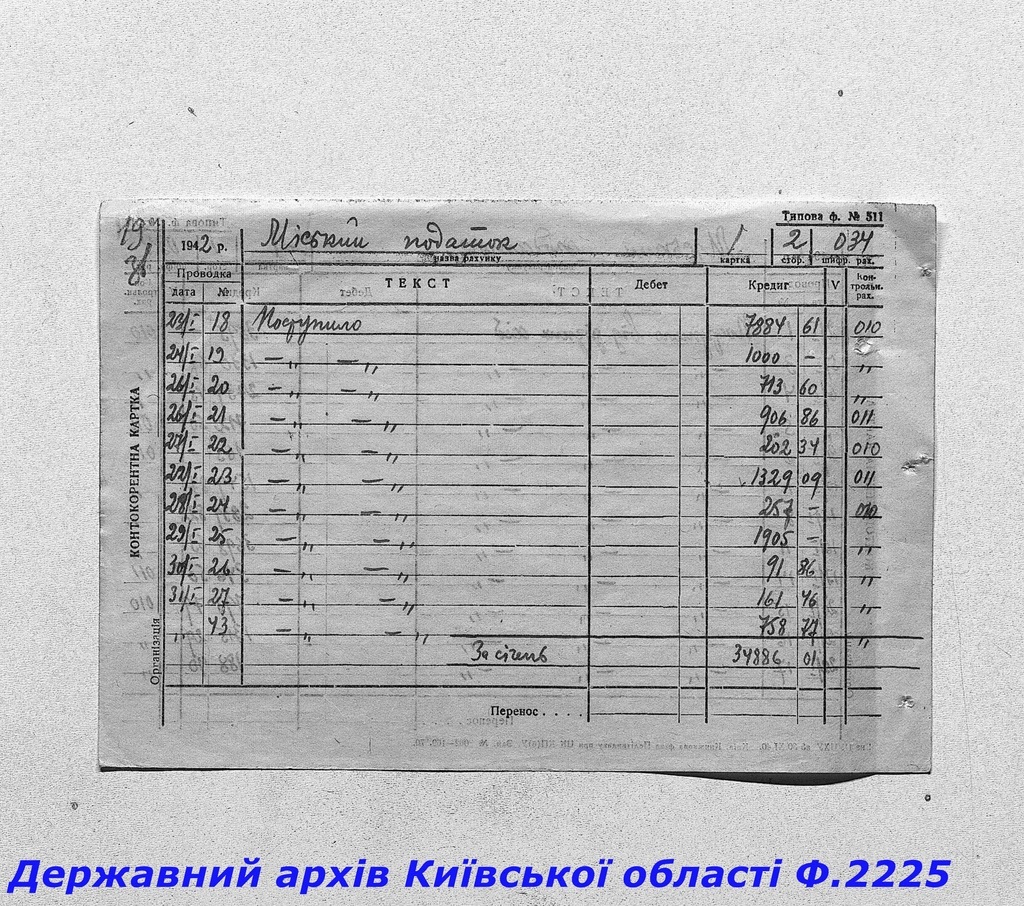 Типова ф. № 511
19
31
1942 р. Міський податок / 2 034
назва рахунку картка стор. шифр. рах.
Проводка ТЕКСТ Дебет Кредит V Контрольн. рах.
дата №
23/I 18 Поступило 7884 61 010
24/I 19 — „ — „ 1000 — „
26/I 20 — „ — „ 713 60 „
26/I 21 — „ — „ 906 86 011
27/I 22 — „ — „ 202 34 010
22/I 23 — „ — „ 1329 09 011
28/I 24 — „ — „ 257 — 010
29/I 25 — „ — „ 1905 — „
30/I 26 — „ — „ 91 86 „
31/I 27 — „ — „ 161 46 „
„ 43 — „ — „ 758 77 „
За січень 34886 01
Перенос . . . .
КОНТОКОРЕНТНА КАРТКА
Організація
Державний архів Київської області Ф.2225